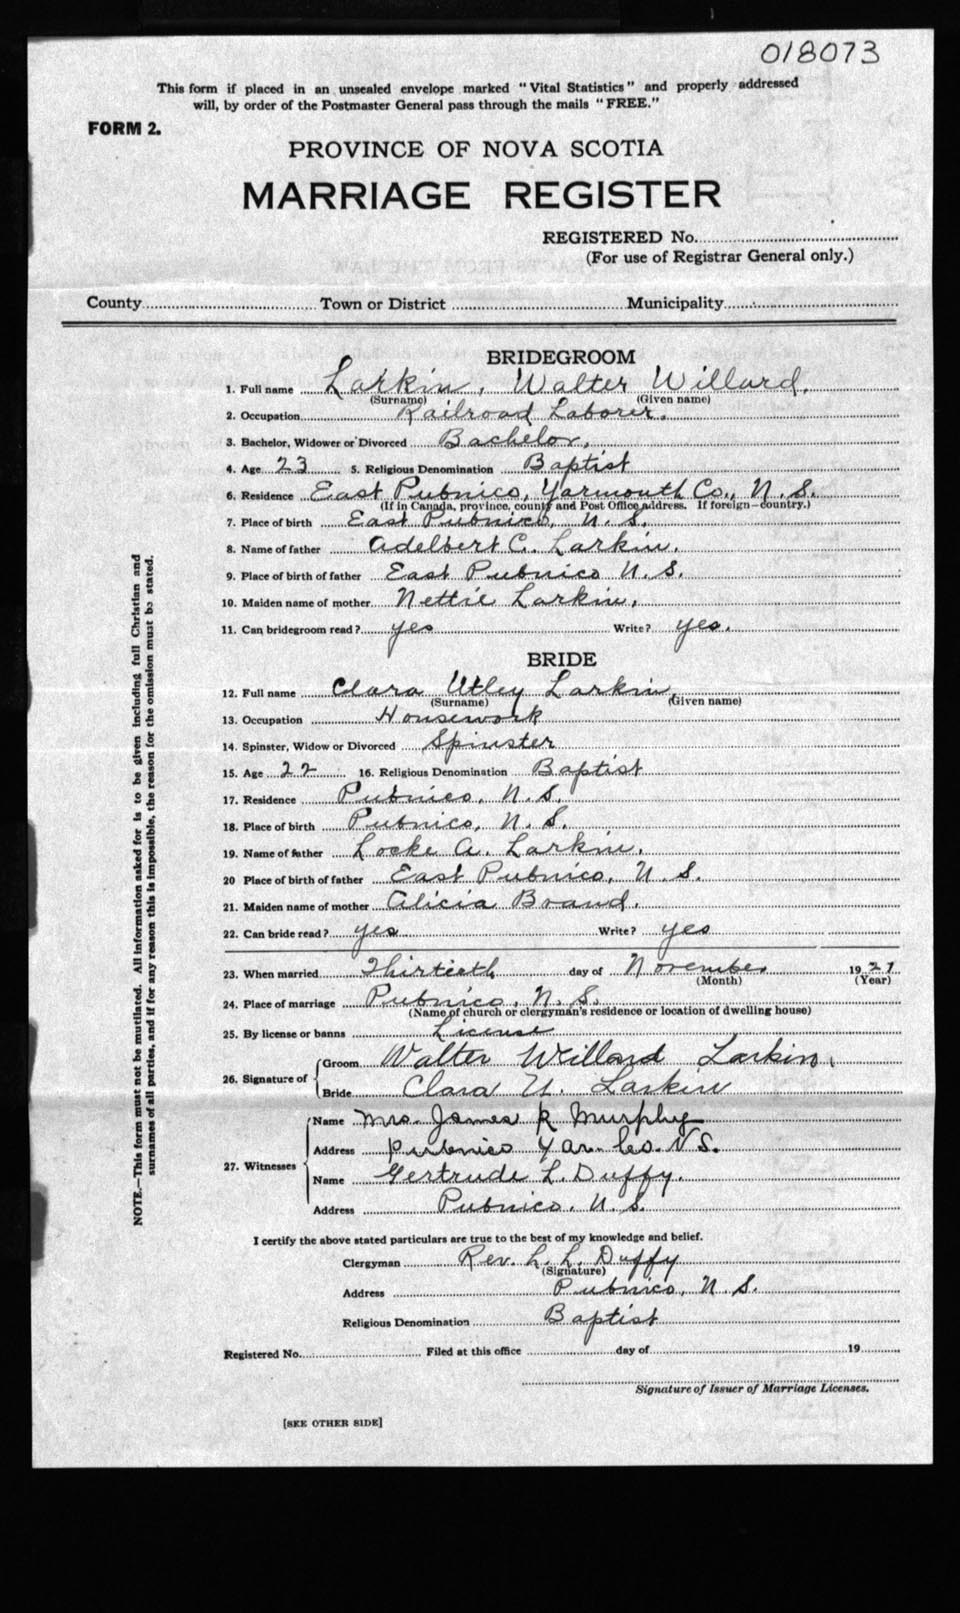 018073
This form if placed in an unsealed envelope marked "Vital Statistics" and properly addressed
will, by order of the Postmaster General pass through the mails "FREE."
FORM 2.
PROVINCE OF NOVA SCOTIA
MARRIAGE REGISTER
REGISTERED No.
(For use of Registrar General only.)
County Town or District Municipality
BRIDEGROOM
1. Full name Larkin, Walter Willard,
(Surname) (Given name)
2. Occupation Railroad Laborer.
3. Bachelor, Widower or Divorced Bachelor,
4. Age 23 5. Religious Denomination Baptist
6. Residence East Pubnico, Yarmouth Co., N.S.
(If in Canada, province, county and Post Office address. If foreign—country.)
7. Place of birth East Pubnico, N.S.
8. Name of father Adelbert C. Larkin.
9. Place of birth of father East Pubnico N.S.
10. Maiden name of mother Nettie Larkin,
11. Can bridegroom read? yes Write? yes.
BRIDE
12. Full name Clara Utley Larkin,
(Surname) (Given name)
13. Occupation Housework
14. Spinster, Widow or Divorced Spinster
15. Age 22 16. Religious Denomination Baptist
17. Residence Pubnico, N.S.
18. Place of birth Pubnico, N.S.
19. Name of father Locke A. Larkin.
20 Place of birth of father East Pubnico, N.S.
21. Maiden name of mother Alicia Brand.
22. Can bride read? yes Write? yes
23. When married Thirtieth day of November 1921
(Month) (Year)
24. Place of marriage Pubnico, N.S.
(Name of church or clergyman's residence or location of dwelling house)
25. By license or banns License
26. Signature of Groom Walter Willard Larkin,
Bride Clara U. Larkin
27. Witnesses Name Mrs. James R Murphy
Address Pubnico Yar. Co. N.S.
Name Gertrude L. Duffy.
Address Pubnico, N.S.
I certify the above stated particulars are true to the best of my knowledge and belief.
Clergyman Rev. L. L. Duffy
(Signature)
Address Pubnico, N.S.
Religious Denomination Baptist
Registered No. Filed at this office day of 19
Signature of Issuer of Marriage Licenses.
[SEE OTHER SIDE]
NOTE.—This form must not be mutilated. All information asked for is to be given including full Christian and
surnames of all parties, and if for any reason this is impossible, the reason for the omission must be stated.